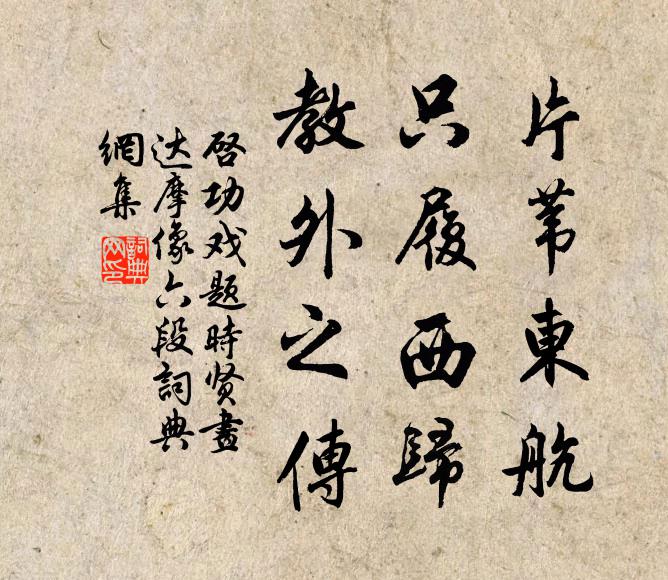 片苇東航
只履西歸
教外之傳
啓功戏题時贤畫
达摩像六段詞典
網集
詞典
网印